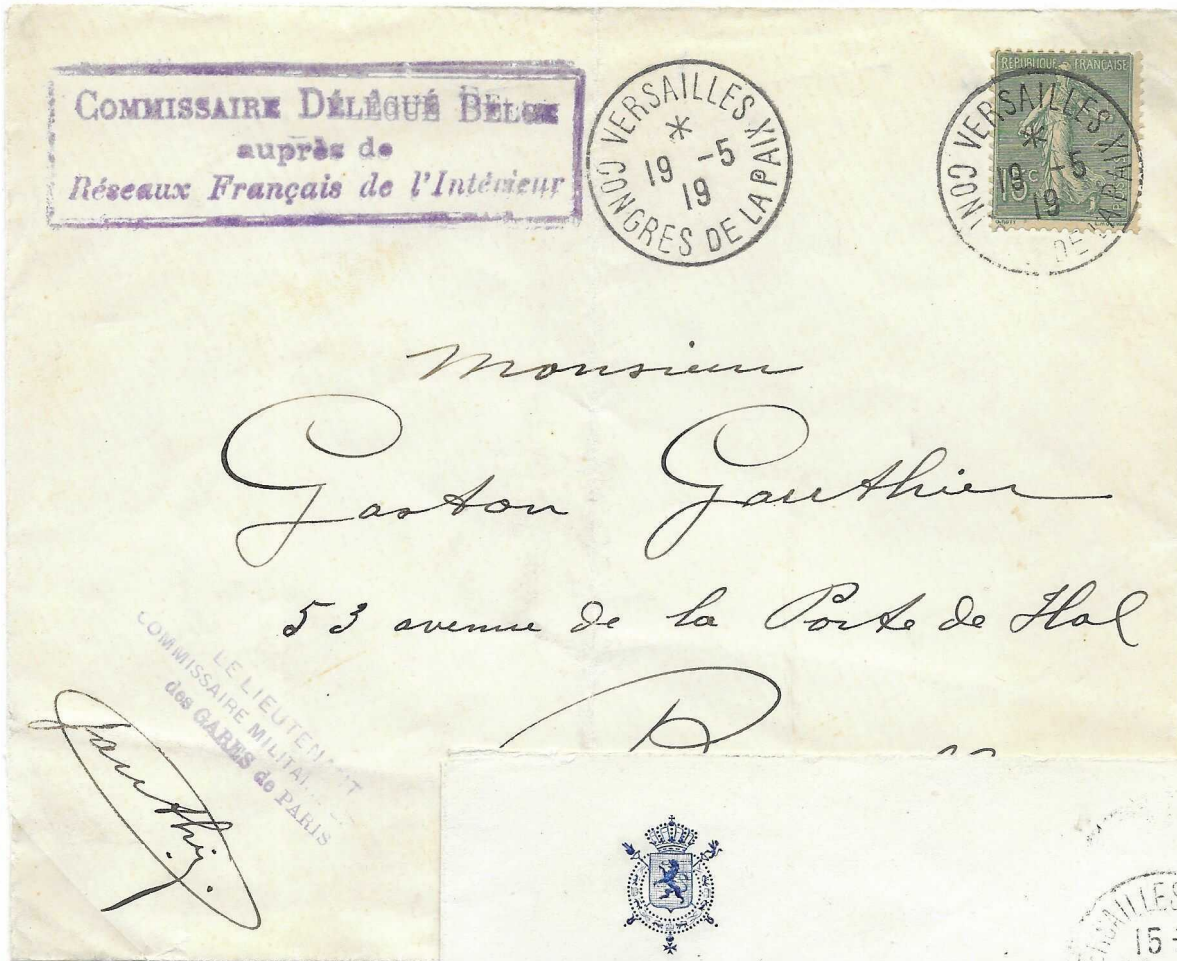 COMMISSAIRE DÉLÉGUÉ BELGE
auprès de
Réseaux Français de l'Intérieur
VERSAILLES XIII
*
19 -5
19
CONGRES DE LA PAIX
REPUBLIQUE FRANÇAISE
VERSAILLES
*
19 -5
19
CON
DE LA PAIX
Monsieur
Gaston Gauthier
53 avenue de la Porte de Hal
LE LIEUTENANT
COMMISSAIRE MILITAI
des GARES de PARIS
Gauthier
VERSAILLES
15 -